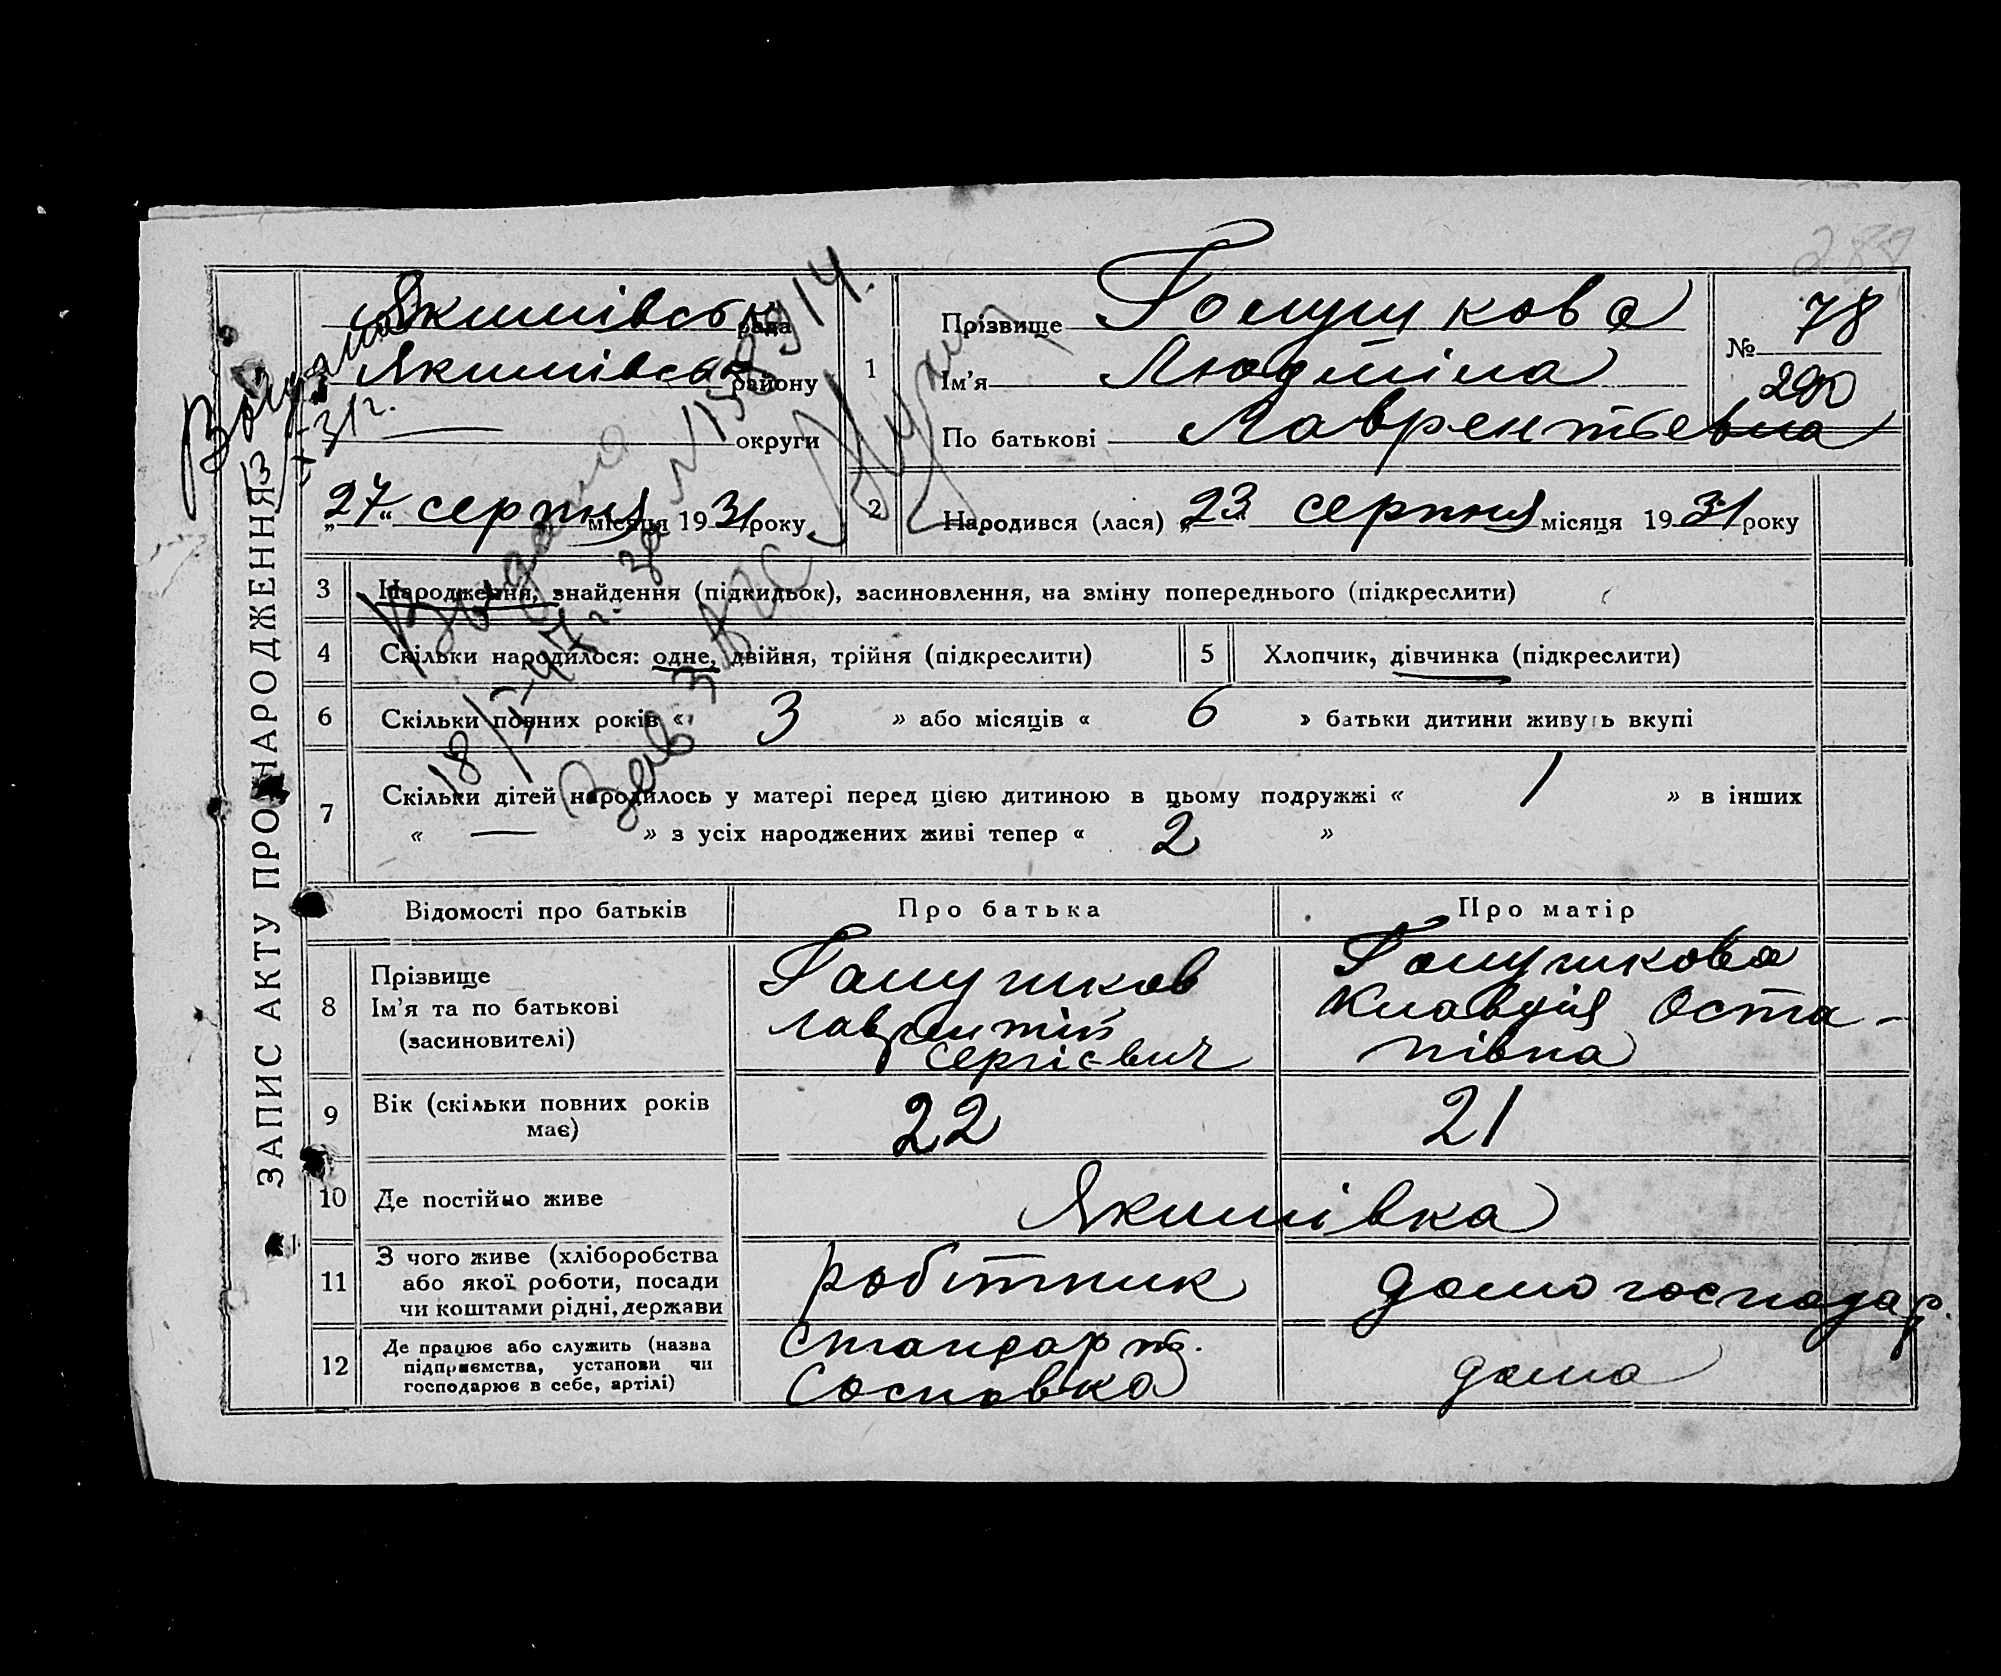 288
Якимівськ рада
Якимівськ району
— округи
„27“ серпня місяця 1931 року
Видано
31 г.
Выдано
18/I-47 г. за № 158914.
Зав. ЗАГС
1 Прізвище Голушкова
Ім'я Людміла
По батькові Лаврентьевна
№ 78
290
2 Народився (лася) „23“ серпня місяця 1931 року
ЗАПИС АКТУ ПРО НАРОДЖЕННЯ
3 Народження, знайдення (підкидьок), засиновлення, на зміну попереднього (підкреслити)
4 Скільки народилося: одне, двійня, трійня (підкреслити) 5 Хлопчик, дівчинка (підкреслити)
6 Скільки повних років « 3 » або місяців « 6 » батьки дитини живуть вкупі
7 Скільки дітей народилось у матері перед цією дитиною в цьому подружжі « 1 » в інших
« — » з усіх народжених живі тепер « 2 »
Відомості про батьків Про батька Про матір
8 Прізвище
Ім'я та по батькові
(засиновителі)
Галушков
Лаврентій
Сергієвич
Галушкова
Клавдія Оста-
півна
9 Вік (скільки повних років
має)
22 21
10 Де постійно живе Якимівка
11 З чого живе (хліборобства
або якої роботи, посади
чи коштами рідні, держави
робітник домогосподар.
12 Де працює або служить (назва
підприємства, установи чи
господарює в себе, артілі)
стандарт.
Сосновка
дома